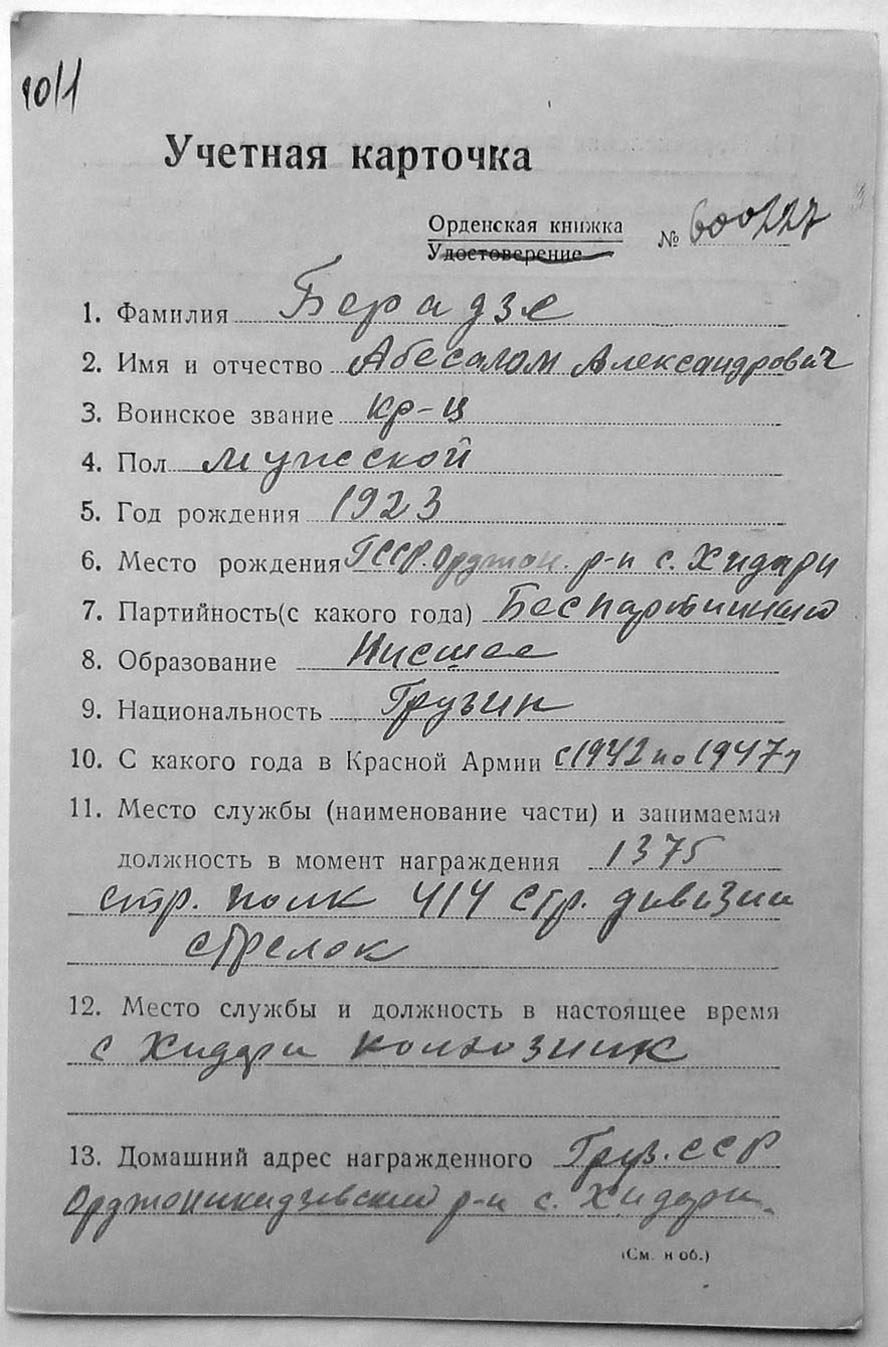 1011
Учетная карточка
Орденская книжка
Удостоверение № 600227
1. Фамилия Берадзе
2. Имя и отчество Абесалом Александрович
3. Воинское звание кр-ц
4. Пол мужской
5. Год рождения 1923
6. Место рождения ГССР. Орджон. р-н с. Хидари
7. Партийность (с какого года) Беспартийный
8. Образование Низшее
9. Национальность Грузин
10. С какого года в Красной Армии с 1942 по 1947 г
11. Место службы (наименование части) и занимаемая
должность в момент награждения 1375
стр. полк 414 стр. дивизии
стрелок
12. Место службы и должность в настоящее время
с Хидари колхозник
13. Домашний адрес награжденного Груз. ССР
Орджоникидзевский р-н с. Хидари
(См. н об.)